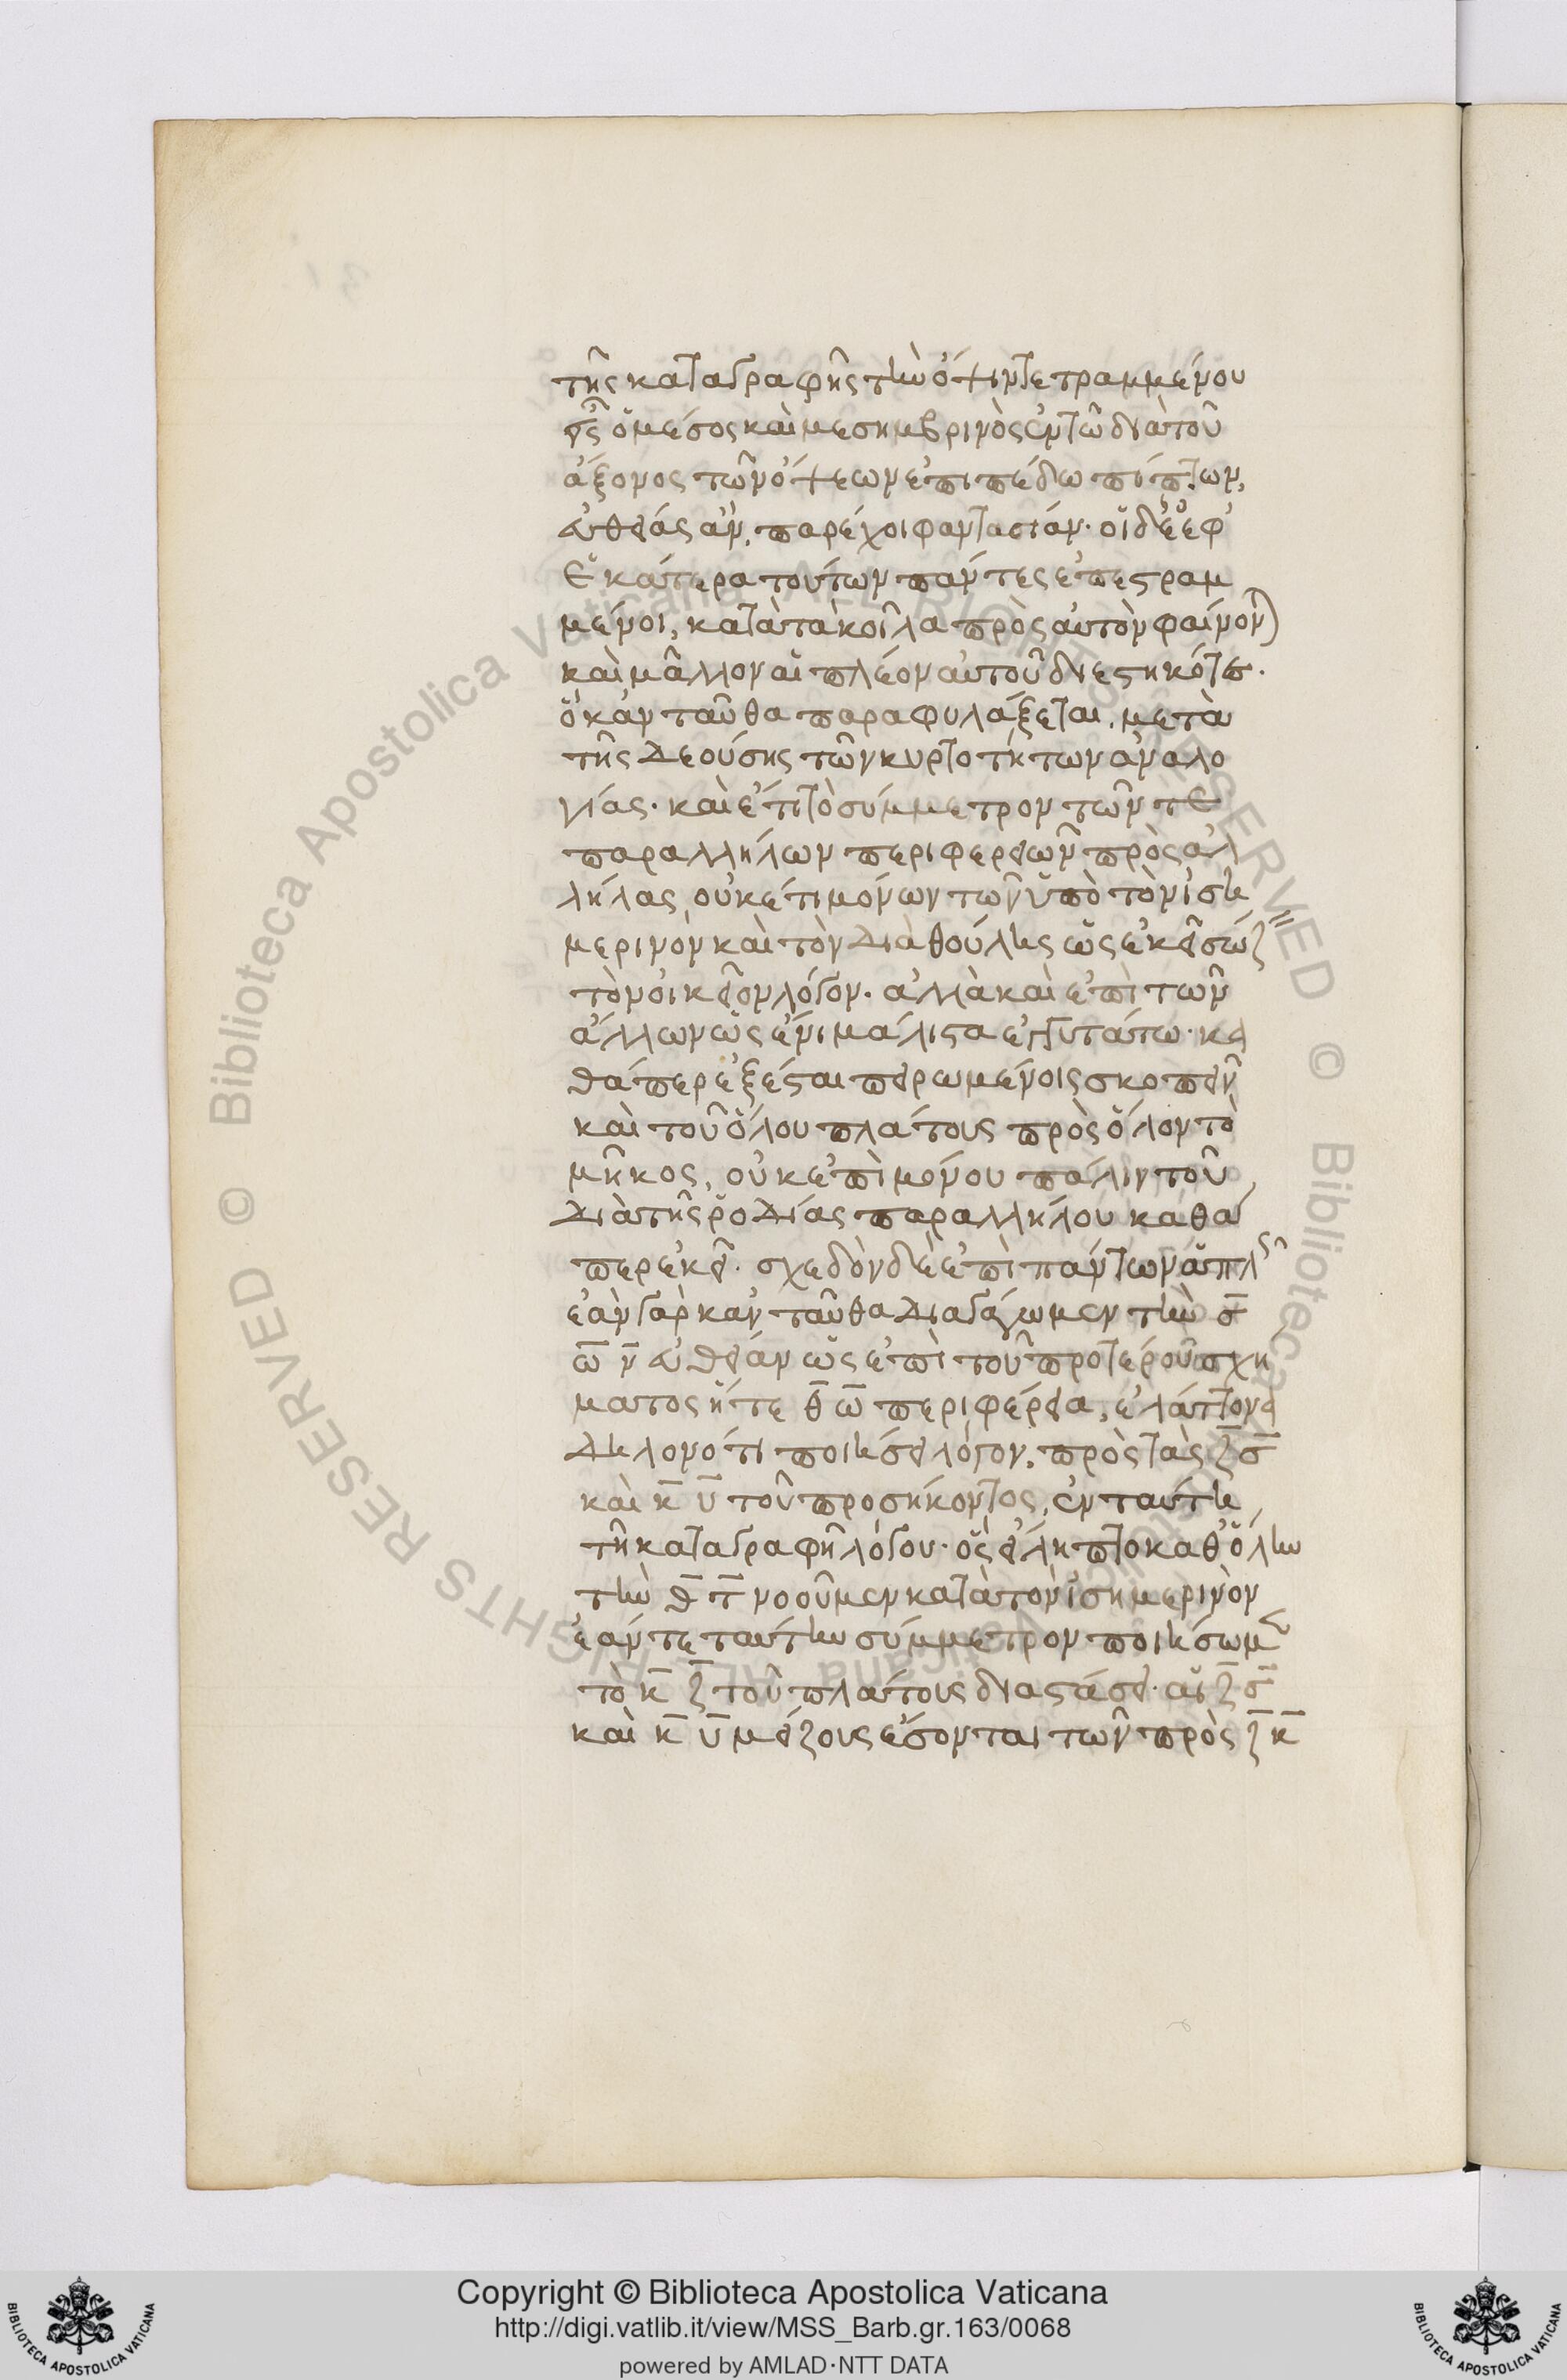 τῆς καταγραφῆς τὴν ὄψιν τετραμμένου
εἷς ὁ μέσος καὶ μεσημβρινὸς ἐν τῶ διὰ τοῦ
ἄξονος τῶν ὄψεων ἐπιπέδω πίπτων,
εὐθείας ἂν παρέχοι φαντασίαν. οἱ δὲ ἐφ'
ἑκάτερα τούτων πάντες ἐπεστραμ
μένοι, κατὰ τὰ κοῖλα πρὸς αὐτὸν φαίνον)
καὶ μᾶλλον αἱ πλέον αὐτοῦ διεστηκότες.
ὃ κἀνταῦθα παραφυλάξεται, μετὰ
τῆς δεούσης τῶν κυρτοτήτων ἀναλο
γίας. καὶ ἔτι τὸ σύμμετρον τῶν τε
παραλλήλων περιφερειῶν πρὸς ἀλ
λήλας, οὐκέτι μόνων τῶν ὑπὸ τὸν ἰση
μερινὸν καὶ τὸν διὰ θούλης ὡς ἐκεῖ σώζ
τὸν οἰκεῖον λόγον. ἀλλὰ καὶ ἐπὶ τῶν
ἄλλων ὡς ἔνι μάλιστα ἐγγυτάτω. κα
θάπερ ἐξέσται πειρωμένοις σκοπεῖν
καὶ τοῦ ὅλου πλάτους πρὸς ὅλον τὸ
μῆκος, οὐκ ἐπὶ μόνου πάλιν τοῦ
διὰ τῆς ῥοδίας παραλλήλου καθά
περ ἐκεῖ. σχεδὸν δὲ ἐπὶ πάντων ἁπλ
ἐὰν γὰρ κἀνταῦθα διαγάγωμεν τὴν σ̅
ω̅ ν̅ εὐθεῖαν ὡς ἐπὶ τοῦ προτέρου σχή
ματος ἥ τε θ̅ ω̅ περιφέρεια, ἐλάττονα
δηλονότι ποιήσει λόγον, πρὸς τὰς ζ̅ σ̅
καὶ κ̅ υ̅ τοῦ προσήκοντος, ἐν ταύτη
τῆ καταγραφῆ λόγου. ὃς εἴληπτο καθ' ὅλην
τὴν θ̅ τ̅ νοοῦμεν κατὰ τὸν ἰσημερινὸν
ἐάν τε ταύτην σύμμετρον ποιήσωμ
τὸ κ̅ ζ̅ τοῦ πλάτους διαστάσει. αἱ ζ̅ σ̅
καὶ κ̅ υ̅ μείζους ἔσονται τῶν πρὸς ζ̅ κ̅
Copyright © Biblioteca Apostolica Vaticana
http://digi.vatlib.it/view/MSS_Barb.gr.163/0068
powered by AMLAD·NTT DATA